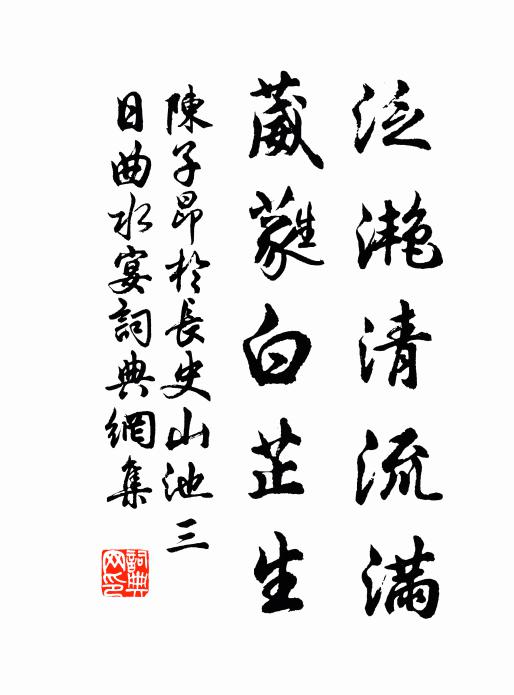 泛灩清流滿
葳蕤白芷生
陳子昂於長史山池三
日曲水宴詞典網集
詞典
网印